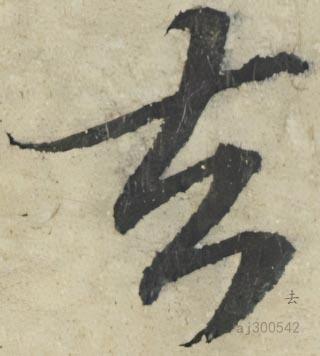 去
去
aj300542